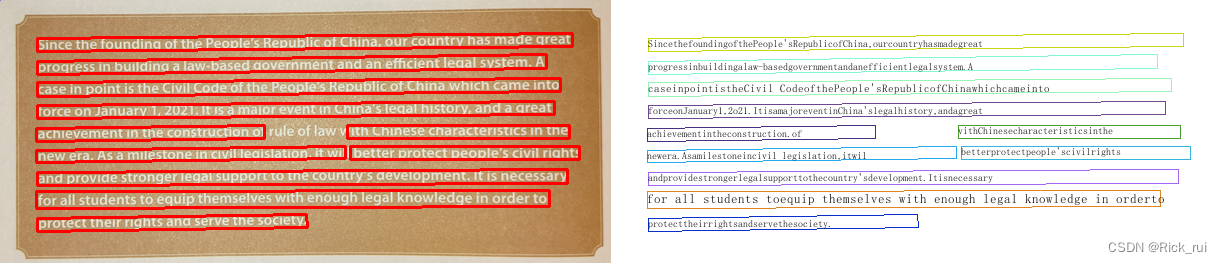 Since the founding of the People's Republic of China, our country has made great
progress in building a law-based government and an efficient legal system. A
case in point is the Civil Code of the People's Republic of China which came into
force on January 1, 2021. It is a major event in China's legal history, and a great
achievement in the construction of rule of law with Chinese characteristics in the
new era. As a milestone in civil legislation, it will better protect people's civil rights
and provide stronger legal support to the country's development. It is necessary
for all students to equip themselves with enough legal knowledge in order to
protect their rights and serve the society.
SincethefoundingofthePeople'sRepublicofChina,ourcountryhasmadegreat
progressinbuildingalaw-basedgovernmentandanefficientlegalsystem.A
caseinpointistheCivil CodeofthePeople'sRepublicofChinawhichcameinto
forceonJanuary1,2o21.ItisamajoreventinChina'slegalhistory,andagreat
achievementintheconstruction.of vithChinesecharacteristicsinthe
newera.Asamilestoneincivil legislation,itwil betterprotectpeople'scivilrights
andprovidestrongerlegalsupporttothecountry'sdevelopment.Itisnecessary
for all students toequip themselves with enough legal knowledge in orderto
protecttheirrightsandservethesociety.
CSDN @Rick_rui